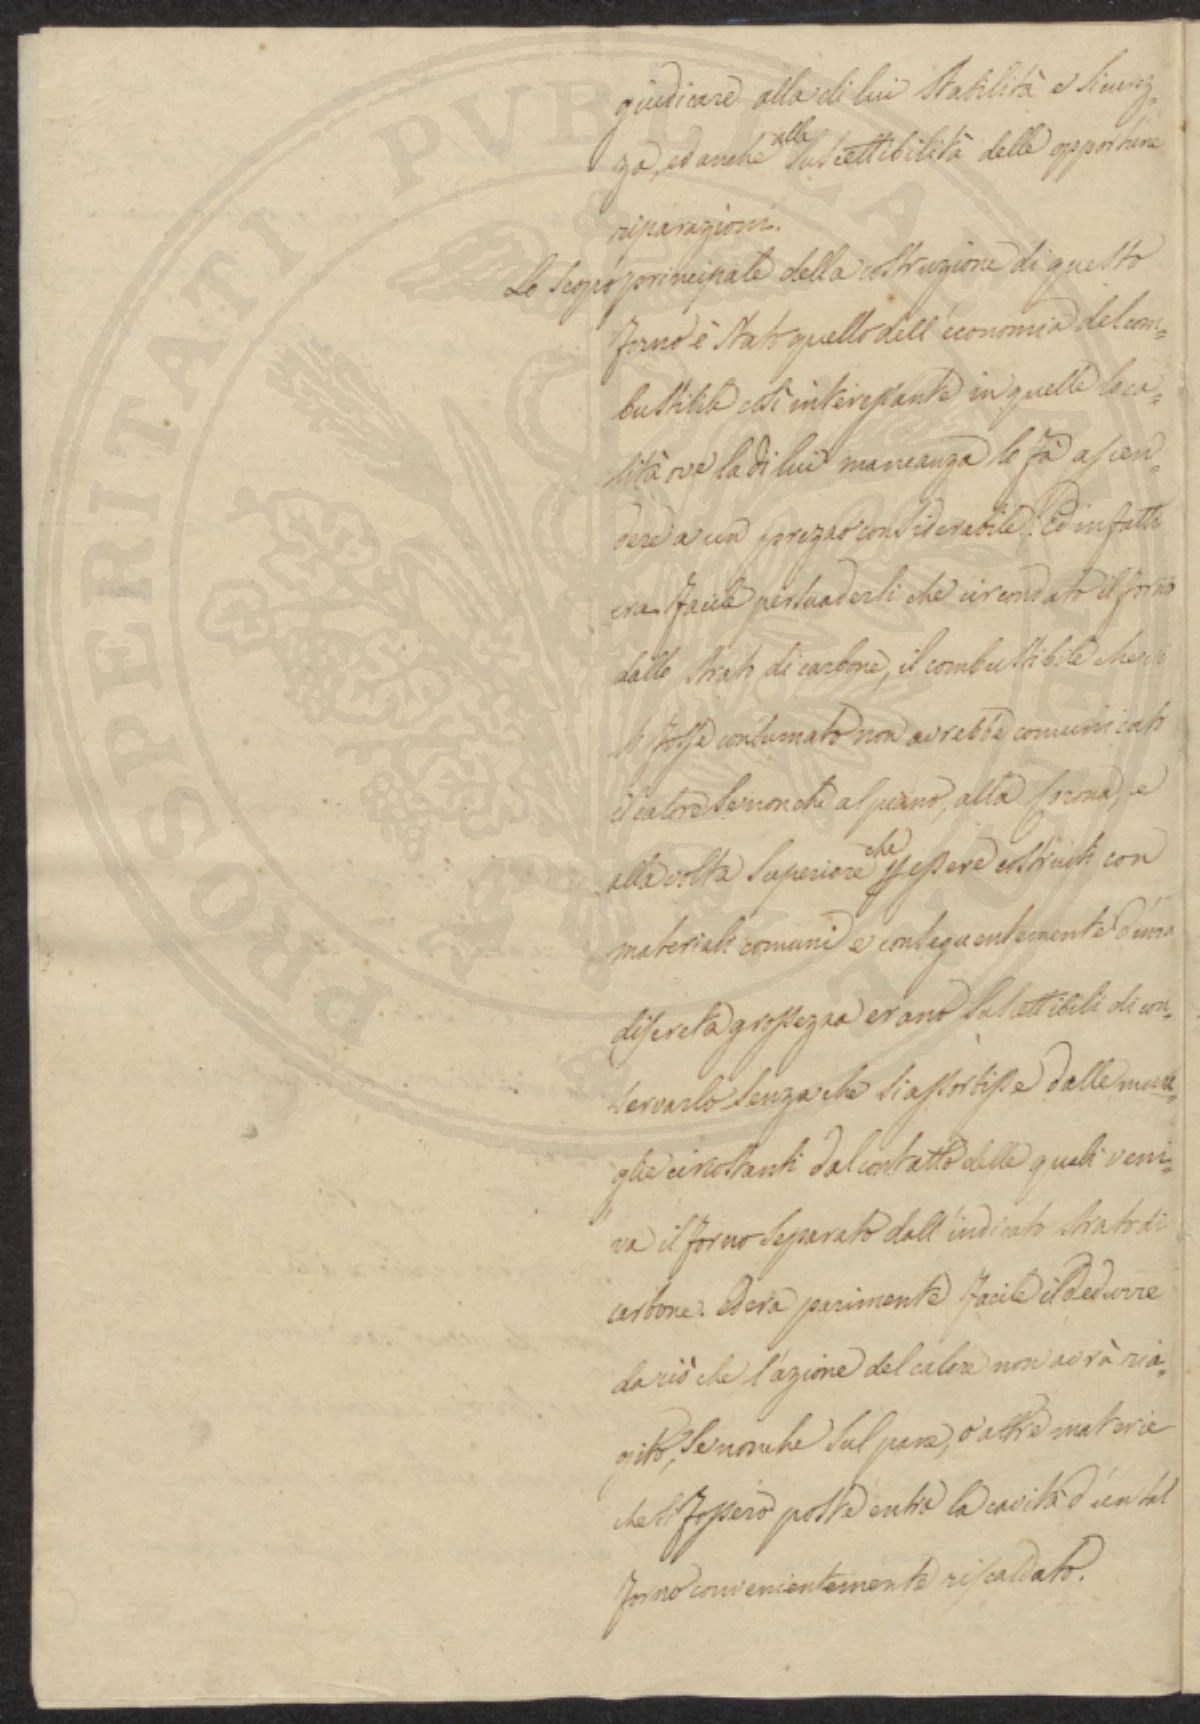 giudicare alla di lui stabilità e sicurez-
za, ed anche alla suscettibilità delle opportune
riparazioni.
Lo scopo principale della costruzione di questo
forno è stato quello dell'economia del com-
bustibile così interessante in quelle loca-
lità ove la di lui mancanza lo fà ascen-
dere a un prezzo considerabile. Ed infatti
era facile persuadersi che circondato il forno
dallo strato di carbone, il combustibile che vi
si fosse consumato non avrebbe comunicato
il calore se non che al piano, alla corona, e
alla volta superiore che essere costruiti con
materiali comuni e conseguentemente d'una
discreta grossezza erano suscettibili di con-
servarlo senza che si assortisse dalle mura-
glie circostanti dal contatto delle quali veni-
va il forno separato dall'indicato strato di
carbone. Ed era parimente facile il dedurre
da ciò che l'azione del calore non avrà ria-
gito, se non che sul pane, o altre materie
che si fossero poste entro la cavità d'un tal
forno convenientemente riscaldato.
PROSPERITATI PUBLICAE